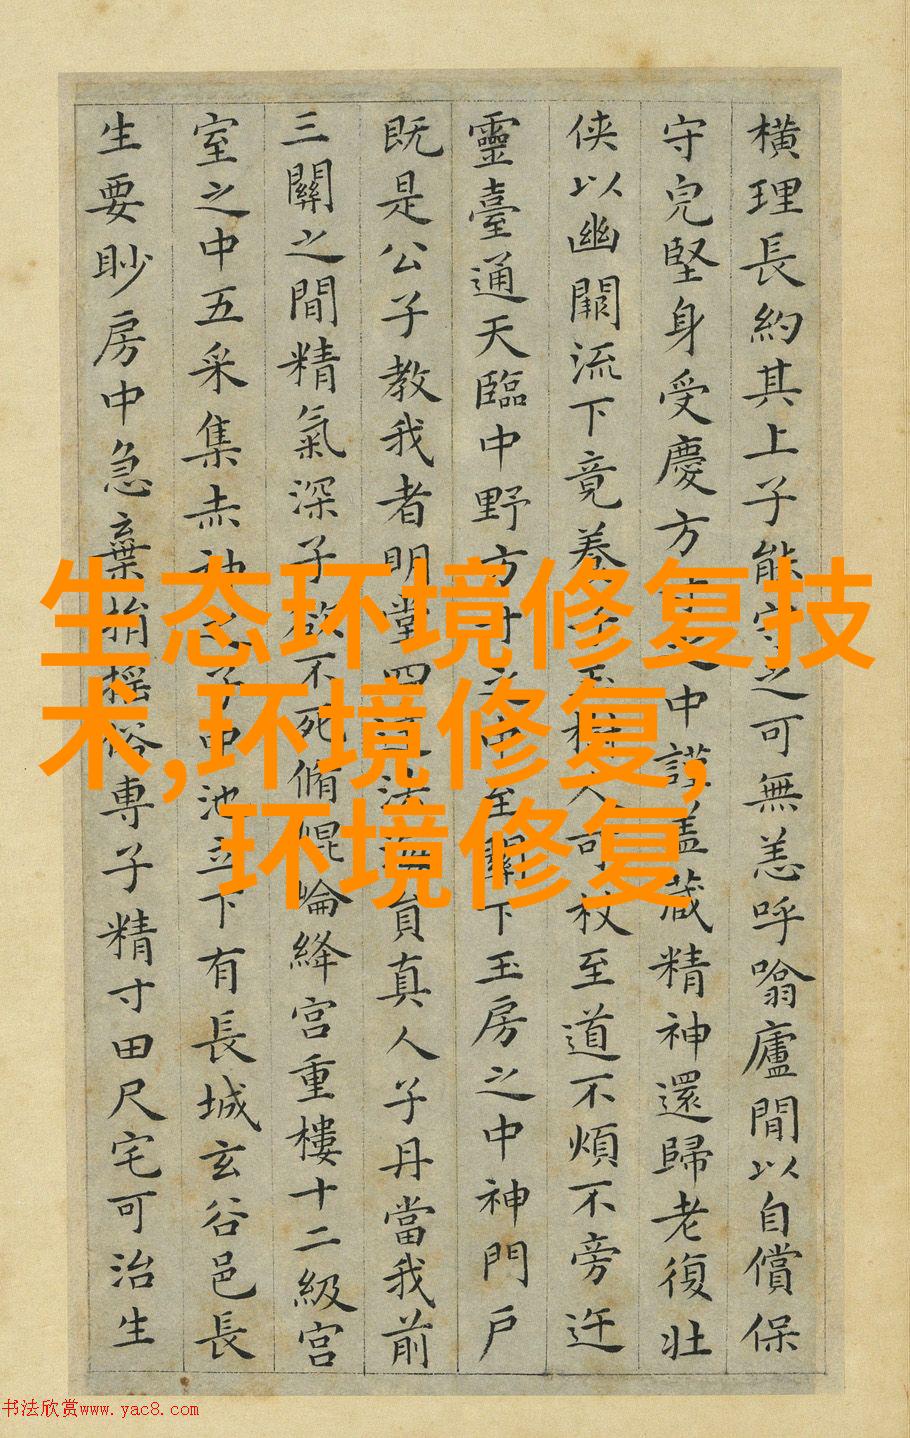 横理長約其上子能守之可無恙呼噏廬間以自償保
守皃堅身受慶方寸之中謹盖藏精神還歸老復壮
侠以幽闕流下竟養子玉樹人可杖至道不煩不旁迕
靈臺通天臨中野方寸之中至關下玉房之中神門戶
既是公子教我者明堂四達法海員真人子丹當我前
三關之間精氣深子欲不死脩崐崘絳宮重樓十二級宮
室之中五采集赤神之子中池立下有長城玄谷邑長
生要眇房中急棄捐揺俗專子精寸田尺宅可治生
生态环境修复技
术,环境修复,
环境修复
书法欣赏www.yac8.com